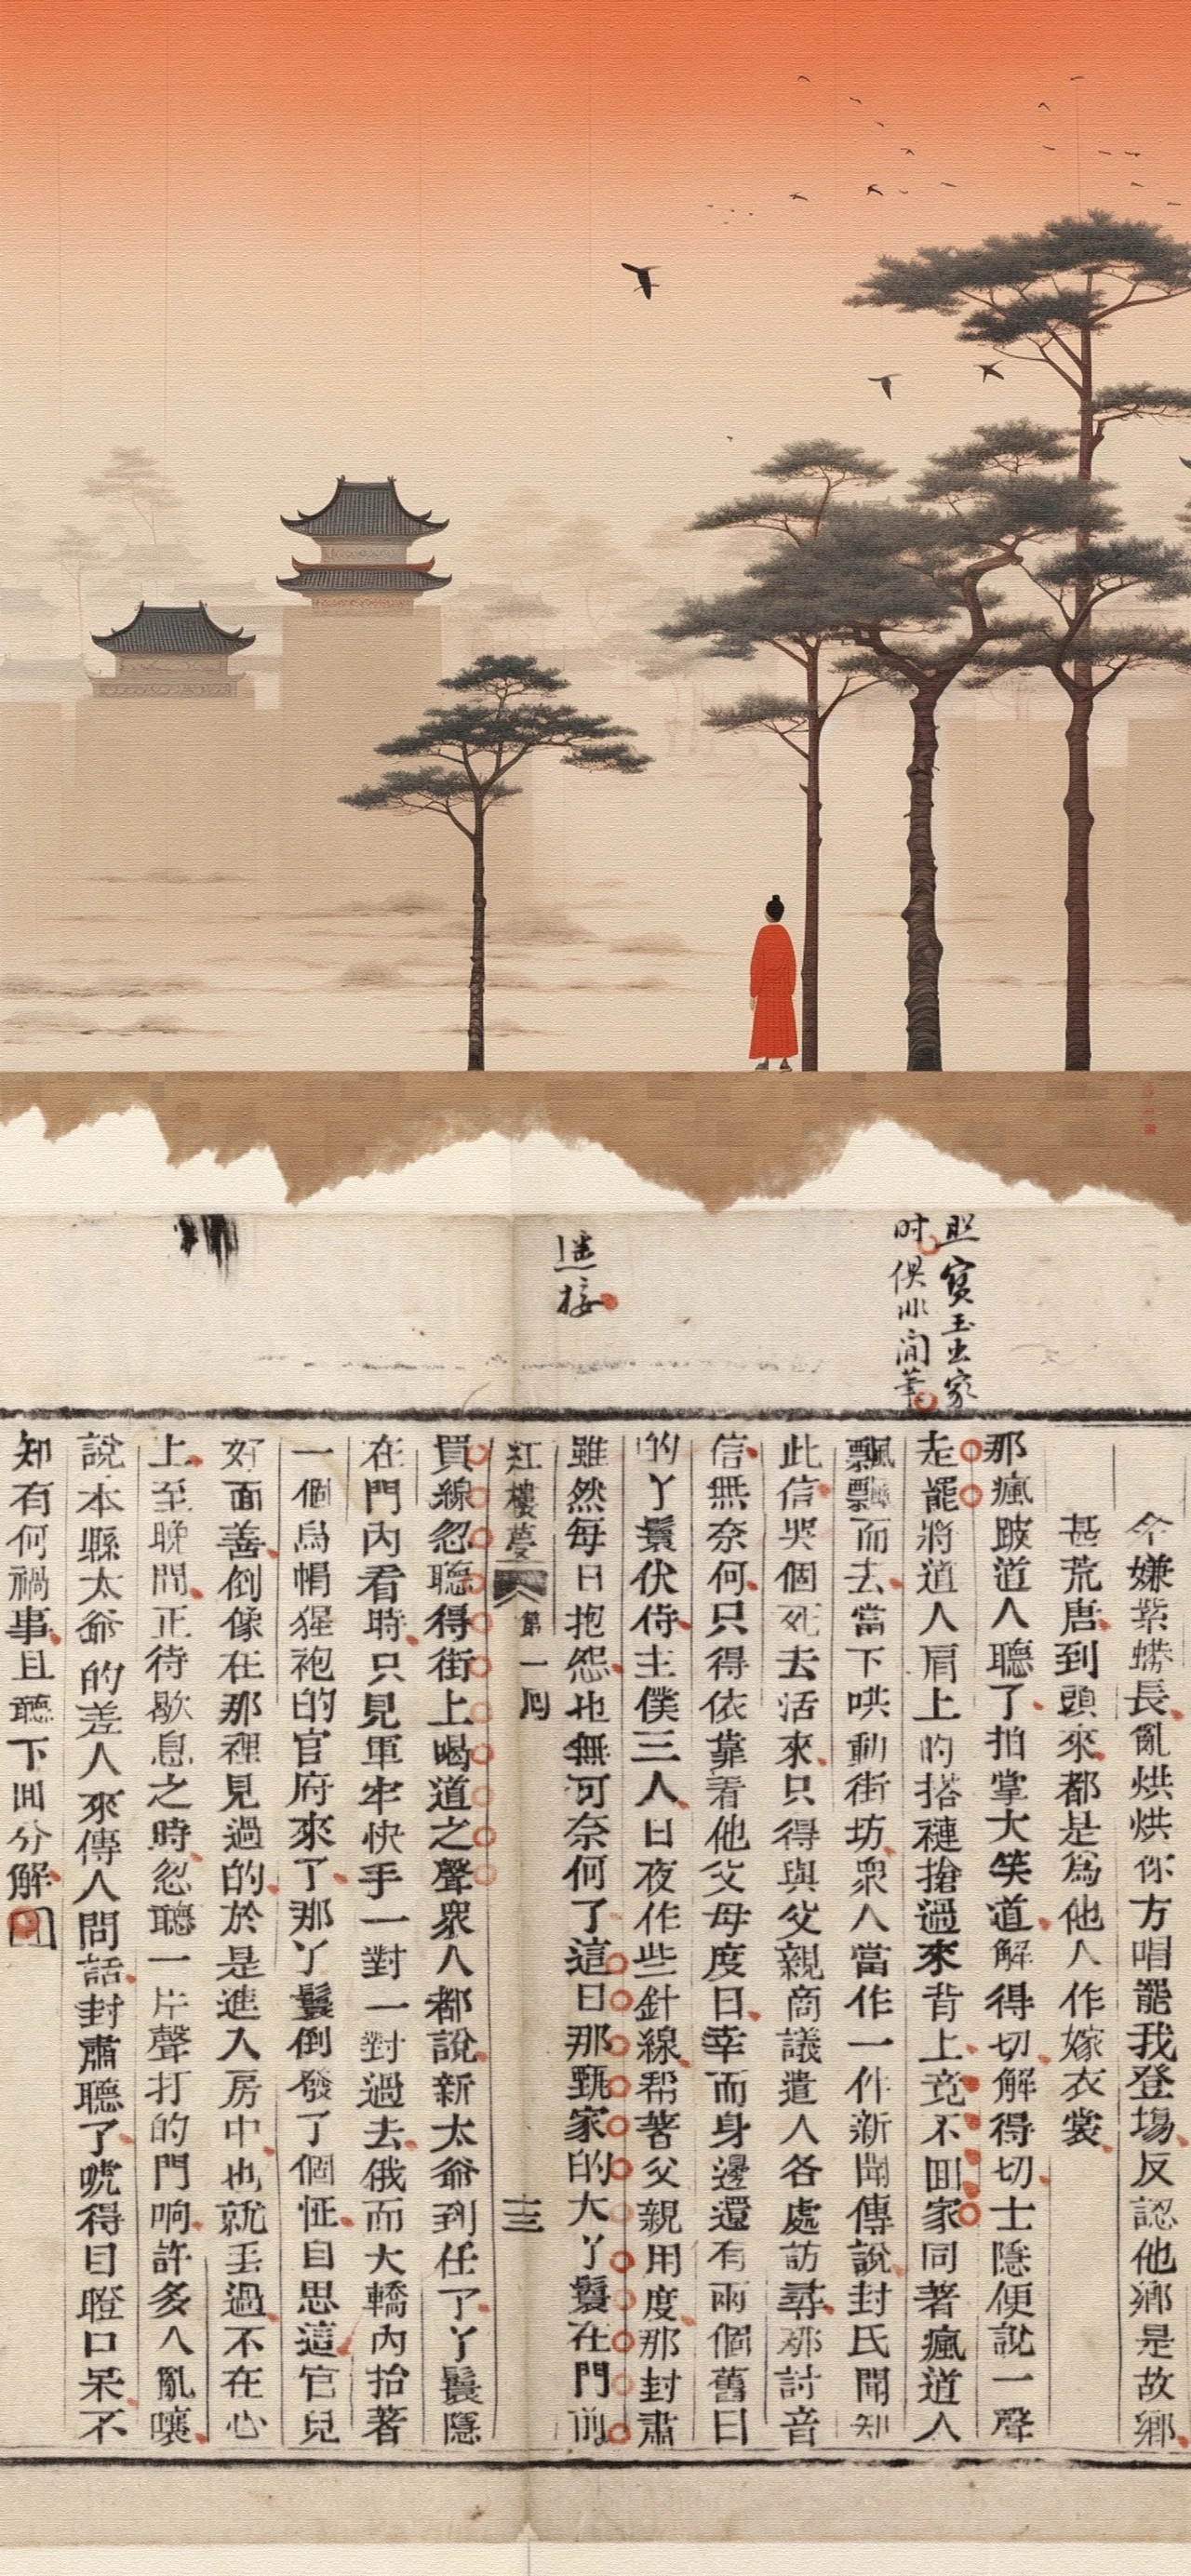 照寶玉出家
时俱非閒筆
遙接
今嫌紫蟒長亂烘烘你方唱罷我登場反認他鄉是故鄉
甚荒唐到頭來都是爲他人作嫁衣裳
那瘋跛道人聽了拍掌大笑道解得切解得切士隱便說一聲
走罷將道人肩上的搭褳搶過來背上竟不囬家同著瘋道人
飄飄而去當下哄動街坊衆人當作一件新聞傳說封氏聞知
此信哭個死去活來只得與父親商議遣人各處訪尋那討音
信無奈何只得依靠着他父母度日幸而身邊還有兩個舊日
的丫鬟伏侍主僕三人日夜作些針線帮著父親用度那封肅
雖然每日抱怨也無可奈何了這日那甄家的大丫鬟在門前
紅樓夢 第一囘 十三
買線忽聽得街上喝道之聲衆人都說新太爺到任了丫鬟隱
在門內看時只見軍牢快手一對一對過去俄而大轎內抬著
一個烏帽猩袍的官府來了那丫鬟倒發了個怔自思這官兒
好面善倒像在那裡見過的於是進入房中也就丢過不在心
上至晚間正待歇息之時忽聽一片聲打的門响許多人亂嚷
說本縣太爺的差人來傳人問話封肅聽了唬得目瞪口呆不
知有何禍事且聽下囬分解